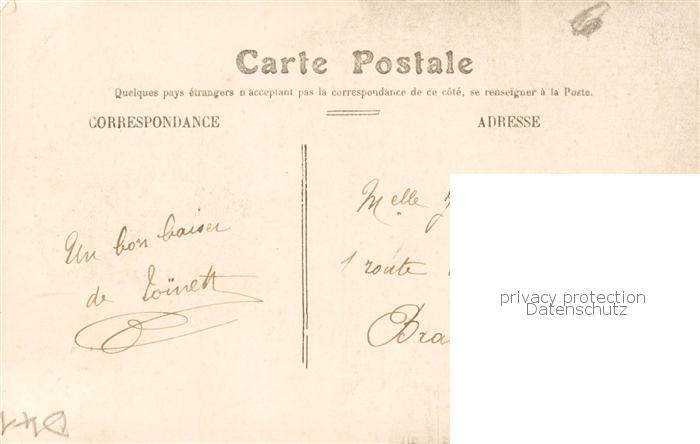 Carte Postale
Quelques pays étrangers n'acceptant pas la correspondance de ce côté, se renseigner à la Poste.
CORRESPONDANCE
ADRESSE
Un bon baiser
de Toïnett
Melle
1 route
Bra
privacy protection
Datenschutz